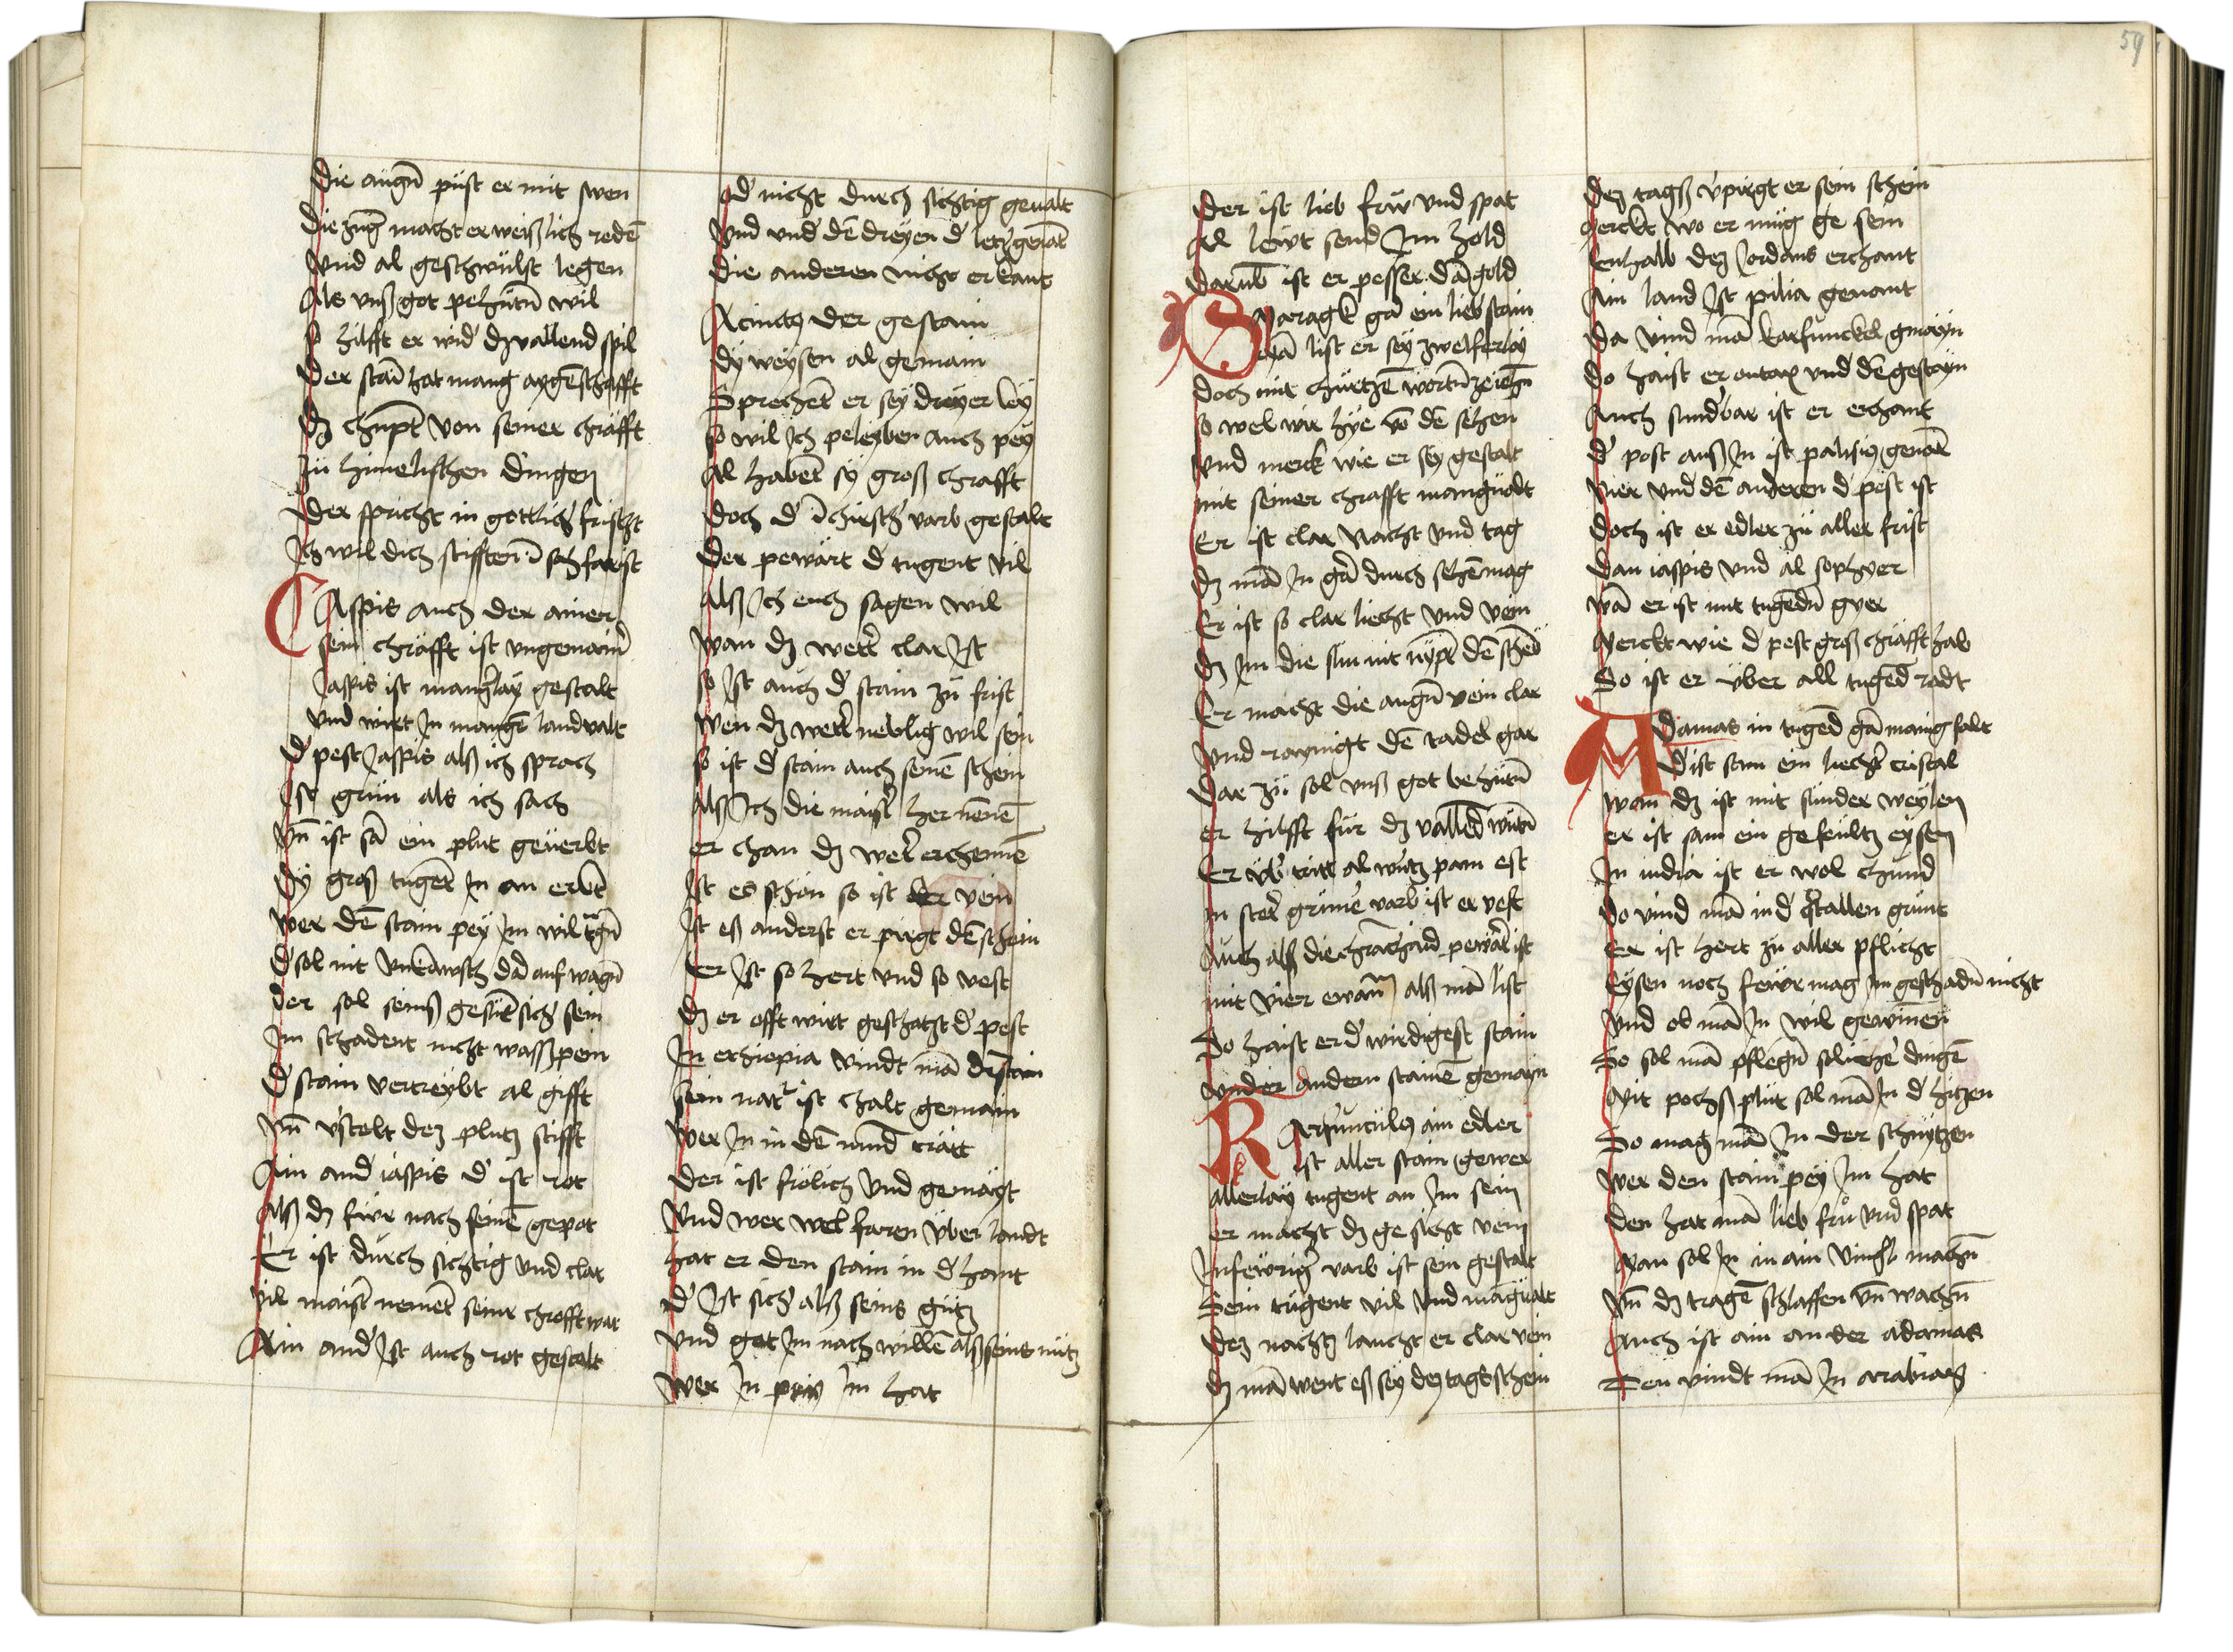 59
Die augn̄ püst er mit swen
Die zūg macht er weißlich redē
Vnd al geschwülst legen
Als vnß got pehütn̄ wil
so hilfft er wid' dz vallend spil
Der stai hat mang aygēschafft
Dz chupt von seiner chräfft
Zü himelischen dingen
Der spricht in gottlich' frischt
Ich wil dich stifften ī
Aspis auch der ainer
sein chräfft ist vngemain
Jaspis ist mang'lay gestalt
vnd wirt In mangē land valt
d' pest Jaspis alß ich sprach
Ist grün als ich sach
vn̄ ist sā ein plut geuerbt
Dy groß tugēt In an erbt
wer dē stain pey Im wil trgn̄
d' sol nit vnkäwsch dā auf wagn̄
der sol seinß gesūt sich' sein
Im schadent nicht wassz pein
d' stain vertreybt al gifft
vn̄ v'stelt dez plutz stifft
Ain and' iaspis d' ist rot
Alß dz fwr nach seinē gepot
Er ist durch sichtig vnd clar
vil maist' nement seine chrafft war
Ain and' Ist auch rot gestalt
d' nicht durch sichtig geualt
Vnd vnd' dē dreyen d' letz genāt
die anderen nicht erkant
Acinctz der gestain
dy weysen al gemain
Sprechēt er sey dreyer ley
so wil Ich peleyben auch pey
Al habēt sy groß chrafft
doch d' varb gestalt
Der pewärt d' tugent vil
Alß Ich euch sagen wil
wan dz wett' clar Ist
so Ist auch d' stain zü frist
wen dz wett' neblig wil sein
so ist d' stain auch seinē schein
Alß Ich die maist' her nēnē
er chan dz wet' erchennē
Ist es schön so ist der vein
Ist eß anderst er pirgt dē schein
Er Ist so hert vnd so vest
Dz er offt wirt geschatzt d' pest
In ethiopia vindt mā d' stain
sein nat' ist chalt gemain
wer In in dē mūd trätt
Der ist frölich vnd gemäyt
Vnd wer wel faren über landt
hat er den stain in d' hant
d' Ist sich' alß seins gutz
vnd get Im nach willē alß seins nütz
wer In pey Im hat
Der ist lieb frw vnd spat
Al lewt send Im hold
Darūb ist er pesser dā gold
Maragk gā ein lieb stain
mā list er sey zwelferlay
doch mit churtzē wortn̄
so wel wir hye vō dē sehen
vnd merck wie er sey gestalt
mit seiner chrafft mangualt
Er ist clar nacht vnd tag
Dz mā In gā durch sehē mag
Er ist so clar liecht vnd vein
Dz Im die sun nit nypt dē schein
Er macht die augn̄ vein clar
Vnd raynigt dē tadel gar
Dar zü sol vnß got behütn̄
er hilfft für dz vallēd wütn̄
Er üb' tritt al wutz pam est
In stet' grüne varb ist er vest
Auch alß die pewärt ist
mit vier ewan alß mā list
So haist er d' wirdigest stain
vnder andern stainē gemayn
Karfunculus ain edler
ist aller stain gewer
Allerlay tugent an Im sein
er macht dz gesicht vein
In fewrig' varb ist sein gestalt
Sein tugent vil vnd māgualt
Dez nachtz laucht er clar vein
Dz mā went eß sey dez tags schein
Dez tagß v'pirgt er sein schein
Merckt wo er müg ge sein
Enhalb dez Jordans erchant
Ain land Ist pilia genant
Da vind mā karfunckel gmayn
do haist er antax vnd' dē gestayn
Auch sundbar ist er erchant
d' post auß In ist palisiꝯ genāt
wer vnd' dē anderen d' pest ist
doch ist er edler zü aller frist
dan iaspis vnd al sophyer
wā er ist mit tugēdn̄ gyer
Merckt wie d' pest groß chräfft hab
So ist er über all tugēd radt
Adamas in tugēd gā manig falt
D' ist sam ein liecht' cristal
wan dz ist mit sunder weylen
er ist sam ein gefeultz eysen
In india ist er wol chund
do vind mā in d' cristallen grunt
Er ist hert zu aller pflicht
Eysen noch fewr mag Im geschadn̄ nicht
vnd ob mā In wil gewinnen
So sol mā pflegn̄ sölicher dingē
Mit pochß plüt sol mā In d' hitzen
So mag mā In der schnytzen
wer den stain pey Im hat
den hat mā lieb frü vnd spat
Man sol In in ain ving'l machn̄
vn̄ dz tragē schlaffen vn̄ wachn̄
Auch ist ain ander adamas
Den vindt mā In arrabias